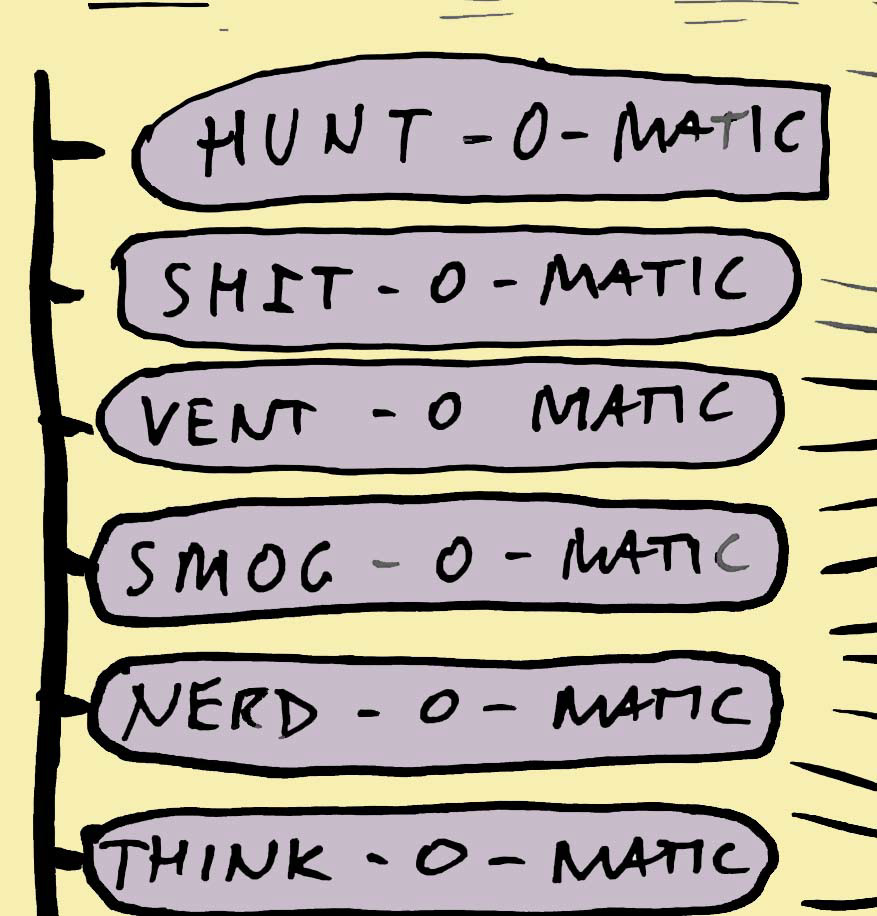 HUNT - O - MATIC
SHIT - O - MATIC
VENT - O MATIC
SMOG - O - MATIC
NERD - O - MATIC
THINK - O - MATIC